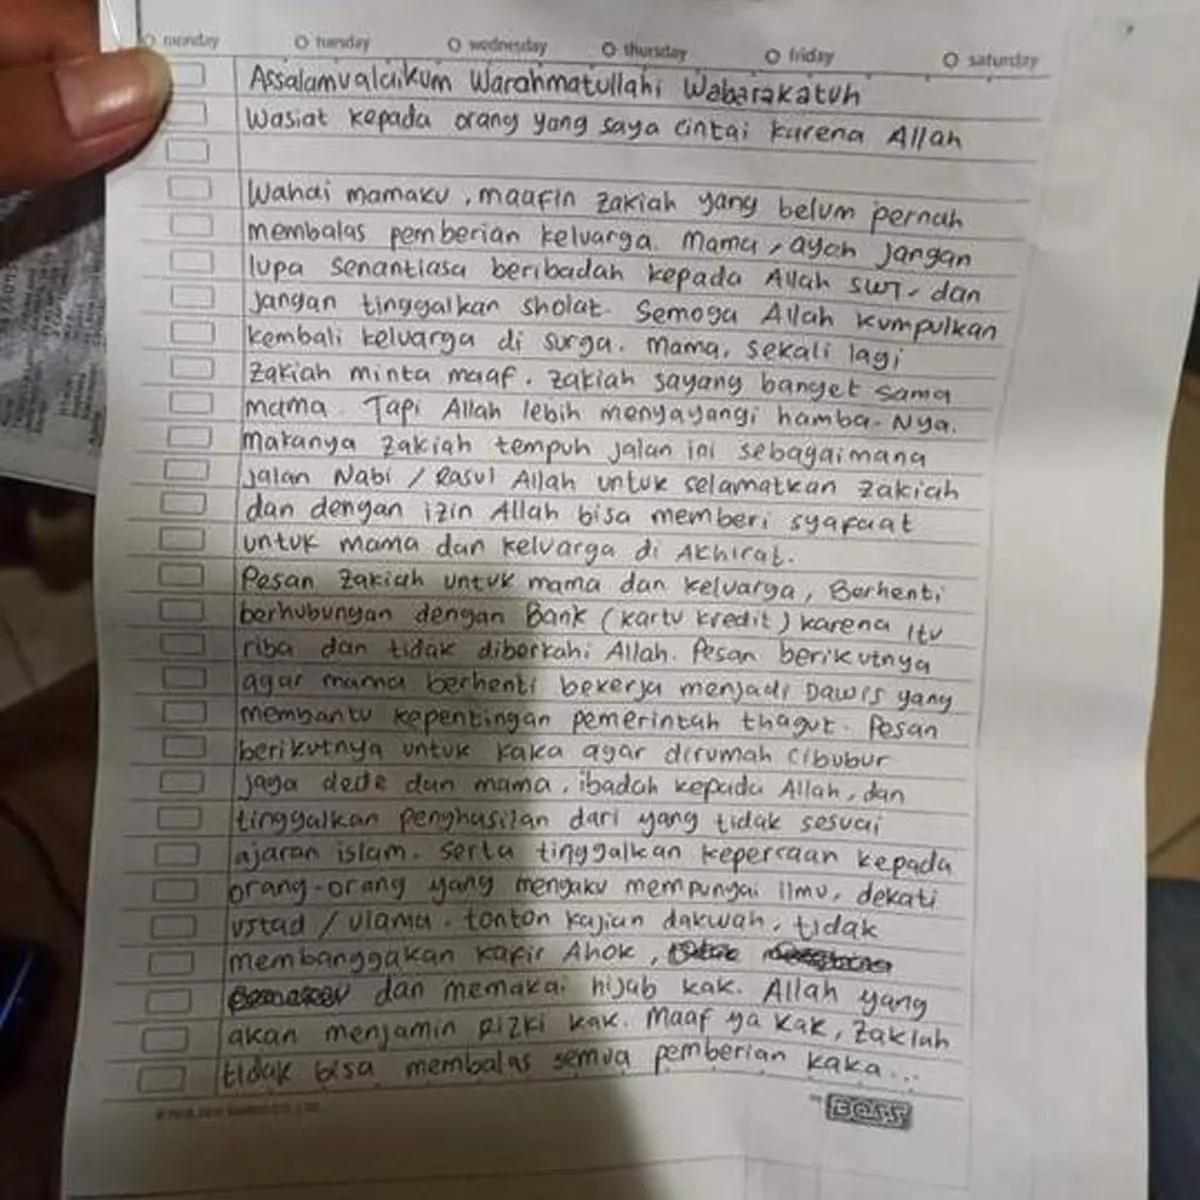 monday tuesday wednesday thursday friday saturday
Assalamualaikum Warahmatullahi Wabarakatuh
Wasiat kepada orang yang saya cintai karena Allah
Wahai mamaku, maafin zakiah yang belum pernah
membalas pemberian keluarga. Mama, ayah jangan
lupa senantiasa beribadah kepada Allah swt. dan
jangan tinggalkan sholat. Semoga Allah kumpulkan
kembali keluarga di surga. Mama, sekali lagi
zakiah minta maaf. zakiah sayang banget sama
mama. Tapi Allah lebih menyayangi hamba-Nya.
makanya zakiah tempuh jalan ini sebagaimana
jalan Nabi / Rasul Allah untuk selamatkan zakiah
dan dengan izin Allah bisa memberi syafaat
untuk mama dan keluarga di Akhirat.
Pesan zakiah untuk mama dan keluarga, Berhenti
berhubungan dengan Bank (kartu kredit) karena Itu
riba dan tidak diberkahi Allah. Pesan berikutnya
agar mama berhenti bekerja menjadi Dawis yang
membantu kepentingan pemerintah thagut. Pesan
berikutnya untuk kaka agar dirumah Cibubur
jaga dede dan mama, ibadah kepada Allah, dan
tinggalkan penghasilan dari yang tidak sesuai
ajaran islam. serta tinggalkan kepercaan kepada
orang-orang yang mengaku mempunyai Ilmu, dekati
ustad / ulama. tonton kajian dakwah, tidak
membanggakan kafir Ahok,
dan memakai hijab kak. Allah yang
akan menjamin Rizki kak. Maaf ya kak, Zakiah
tidak bisa membalas semua pemberian kaka...
BOSS